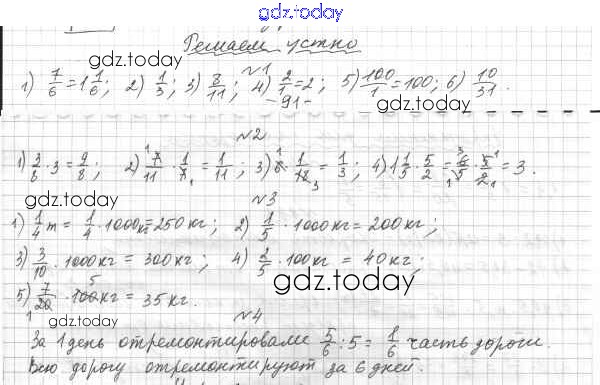 gdz.today
Решаем устно
gdz.today
№1
1) 7/6 = 1 1/6; 2) 1/3; 3) 8/11; 4) 2/1 = 2; 5) 100/1 = 100; 6) 10/31.
- 91 -
gdz.today
№2
1) 3/8 · 3 = 9/8; 2) 7/11 · 1/7 = 1/11; 3) 6 · 1/18 = 1/3; 4) 1 1/5 · 5/2 = 6/5 · 5/2 = 3.
gdz.today
№3
1) 1/4 т = 1/4 · 1000кг = 250 кг; 2) 1/5 · 1000кг = 200 кг;
3) 3/10 · 1000кг = 300 кг; 4) 2/5 · 100кг = 40 кг;
gdz.today
5) 7/20 · 100кг = 35 кг.
gdz.today
№4
За 1 день отремонтировали 5/6 : 5 = 1/6 часть дороги.
Всю дорогу отремонтируют за 6 дней.